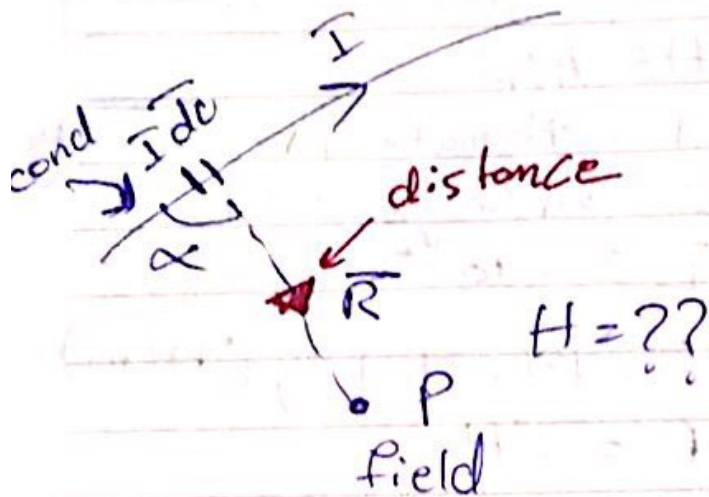 I
cond
I dl
distance
α
R
H = ??
P
field